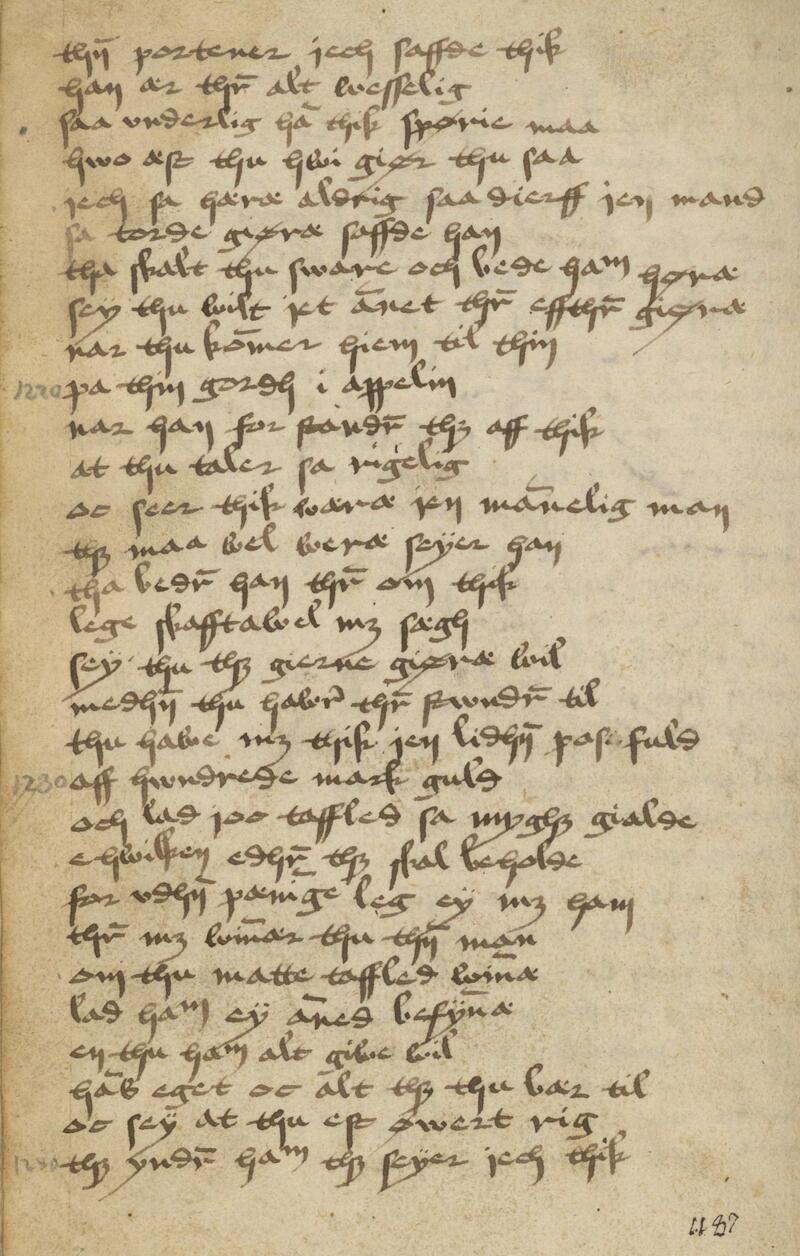 thn̄ portener jech saffde thik
han ær thr̄ alt wesselig
saa vnderlig hā thik spørie maa
hwo æst thu hwi giør thu saa
jech sa hæræ aldrig saa dierff jen mand
sa torde giøræ saffde han
tha skalt thu sware och bede ham høræ
sey thu wilt jet ān̄et thr̄ effthr̄ giøræ
nar thu kom̄er hiem til thin
1220 pa thin gordh i appelin
nar han for standr̄ thꝫ aff thik
at thu taler sa rigelig
oc seer thik wæræ jen man̄elig man
thꝫ maa wel weræ seyer han
tha bedr̄ han thr̄ om thik
lege skafftawel mꝫ sægh
sey thu thꝫ gierne giøræ wil
medhn̄ thu hawr̄ thr̄ stwndr̄ til
thu hawe mꝫ thik jen lidhn̄ pos fuld
1230 aff hwndrede mark guld
och lad joo taffled sa myghꝫ gialde
e hwilken edhr̄ thꝫ skal beholde
for vdhn̄ pæni̅ge leg ey mꝫ ham
thr̄ mꝫ win̄ær thu thn̄ man
om thu matte taffled win̄æ
lad ham ey an̄ed befyn̄æ
en thu ham alt giwe wil
hās eget oc alt thꝫ thu bær til
oc sey at thu est øwert rig
1240 thꝫ yndr̄ ham thꝫ seyer jech thik
187